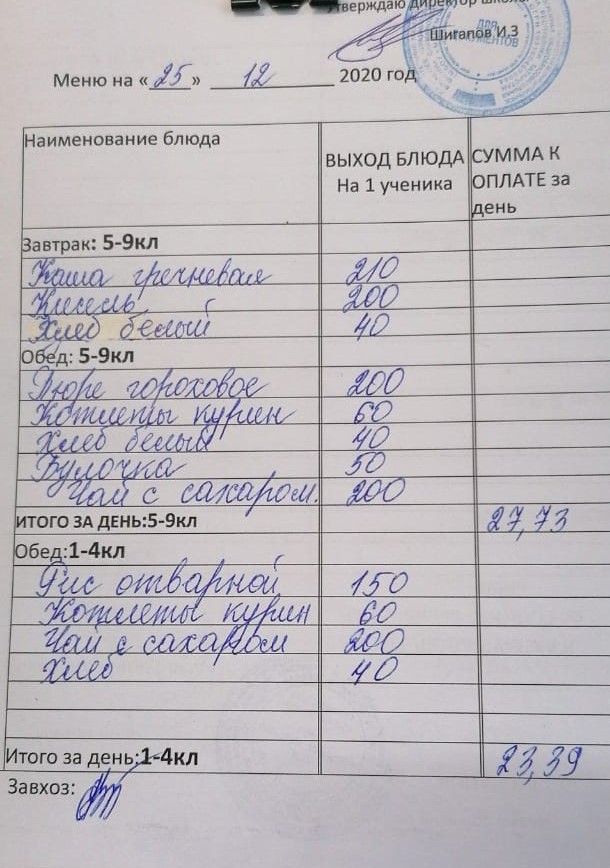 Утверждаю директор школы
Шигапов И.З
ДЛЯ ДОКУМЕНТОВ
Меню на «25» 12 2020 год
Наименование блюда ВЫХОД БЛЮДА На 1 ученика СУММА К ОПЛАТЕ за день
Завтрак: 5-9кл
Каша гречневая 210
Кисель 200
Хлеб белый 40
Обед: 5-9кл
Пюре гороховое 200
Котлеты курин 60
Хлеб белый 40
Булочка 50
Чай с сахаром. 200
ИТОГО ЗА ДЕНЬ:5-9кл 27,73
Обед:1-4кл
Рис отварной 150
Котлеты курин 60
Чай с сахаром 200
Хлеб 40
Итого за день:1-4кл 23,39
Завхоз: